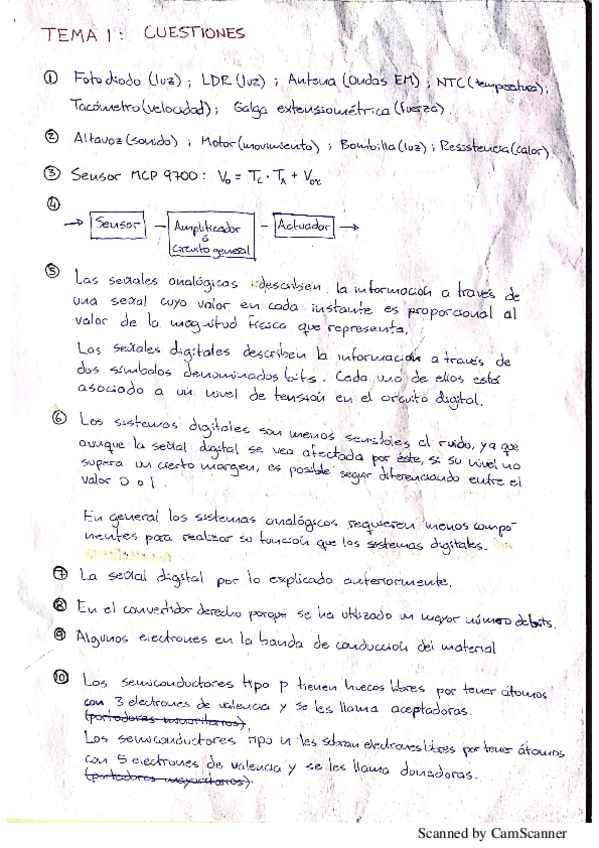 TEMA 1: CUESTIONES
① Fotodiodo (luz) ; LDR (luz) ; Antena (Ondas EM) ; NTC (temperatura);
Tacómetro (velocidad); Galga extensiométrica (fuerza).
② Altavoz (sonido) ; Motor (movimiento) ; Bombilla (luz) ; Resistencia (calor).
③ Sensor MCP 9700: Vo = Tc · TA + Voºc
④
→ Sensor – Amplificador ó Circuito general – Actuador →
⑤ Las señales analógicas describen la información a través de
una señal cuyo valor en cada instante es proporcional al
valor de la magnitud física que representa.
Las señales digitales describen la información a través de
dos símbolos denominados bits. Cada uno de ellos está
asociado a un nivel de tensión en el circuito digital.
⑥ Los sistemas digitales son menos sensibles al ruido, ya que
aunque la señal digital se vea afectada por éste, si su nivel no
supera un cierto margen, es posible seguir diferenciando entre el
valor 0 o 1.
En general los sistemas analógicos requieren menos compo-
nentes para realizar su función que los sistemas digitales.
⑦ La señal digital por lo explicado anteriormente.
⑧ En el convertidor derecho porque se ha utilizado un mayor número de bits.
⑨ Algunos electrones en la banda de conducción del material
⑩ Los semiconductores tipo p tienen huecos libres por tener átomos
con 3 electrones de valencia y se les llama aceptadoras.
(portadores minoritarios)
Los semiconductores tipo n les sobran electrones libres por tener átomos
con 5 electrones de valencia y se les llama donadoras.
(portadores mayoritarios)
Scanned by CamScanner